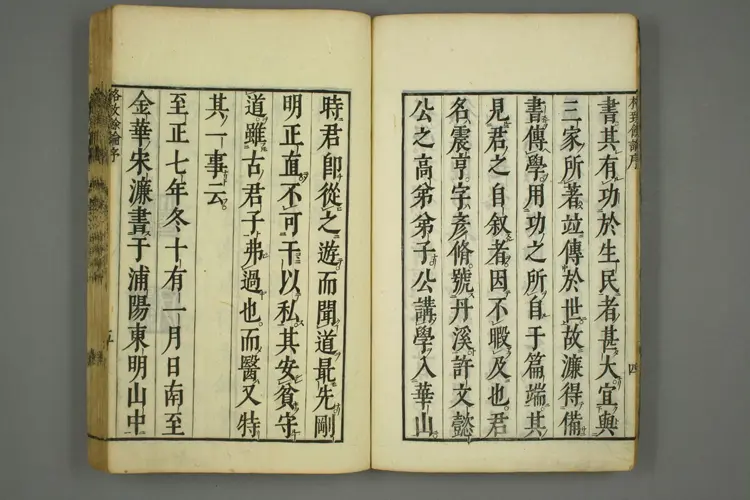 書其有功於生民者甚大宜與
三家所著竝傳於世故濂得備
書傳學用功之所自于篇端其
見君之自叙者因不暇及也君
名震亨字彦脩號丹溪許文懿
公之高弟弟子公講學八華山
四
時君卽從之遊而聞道最先剛
明正直不可干以私其安貧守
道雖古君子弗過也而醫又特
其一事云
至正七年冬十有一月日南至
金華宋濂書于浦陽東明山中
格致餘論序